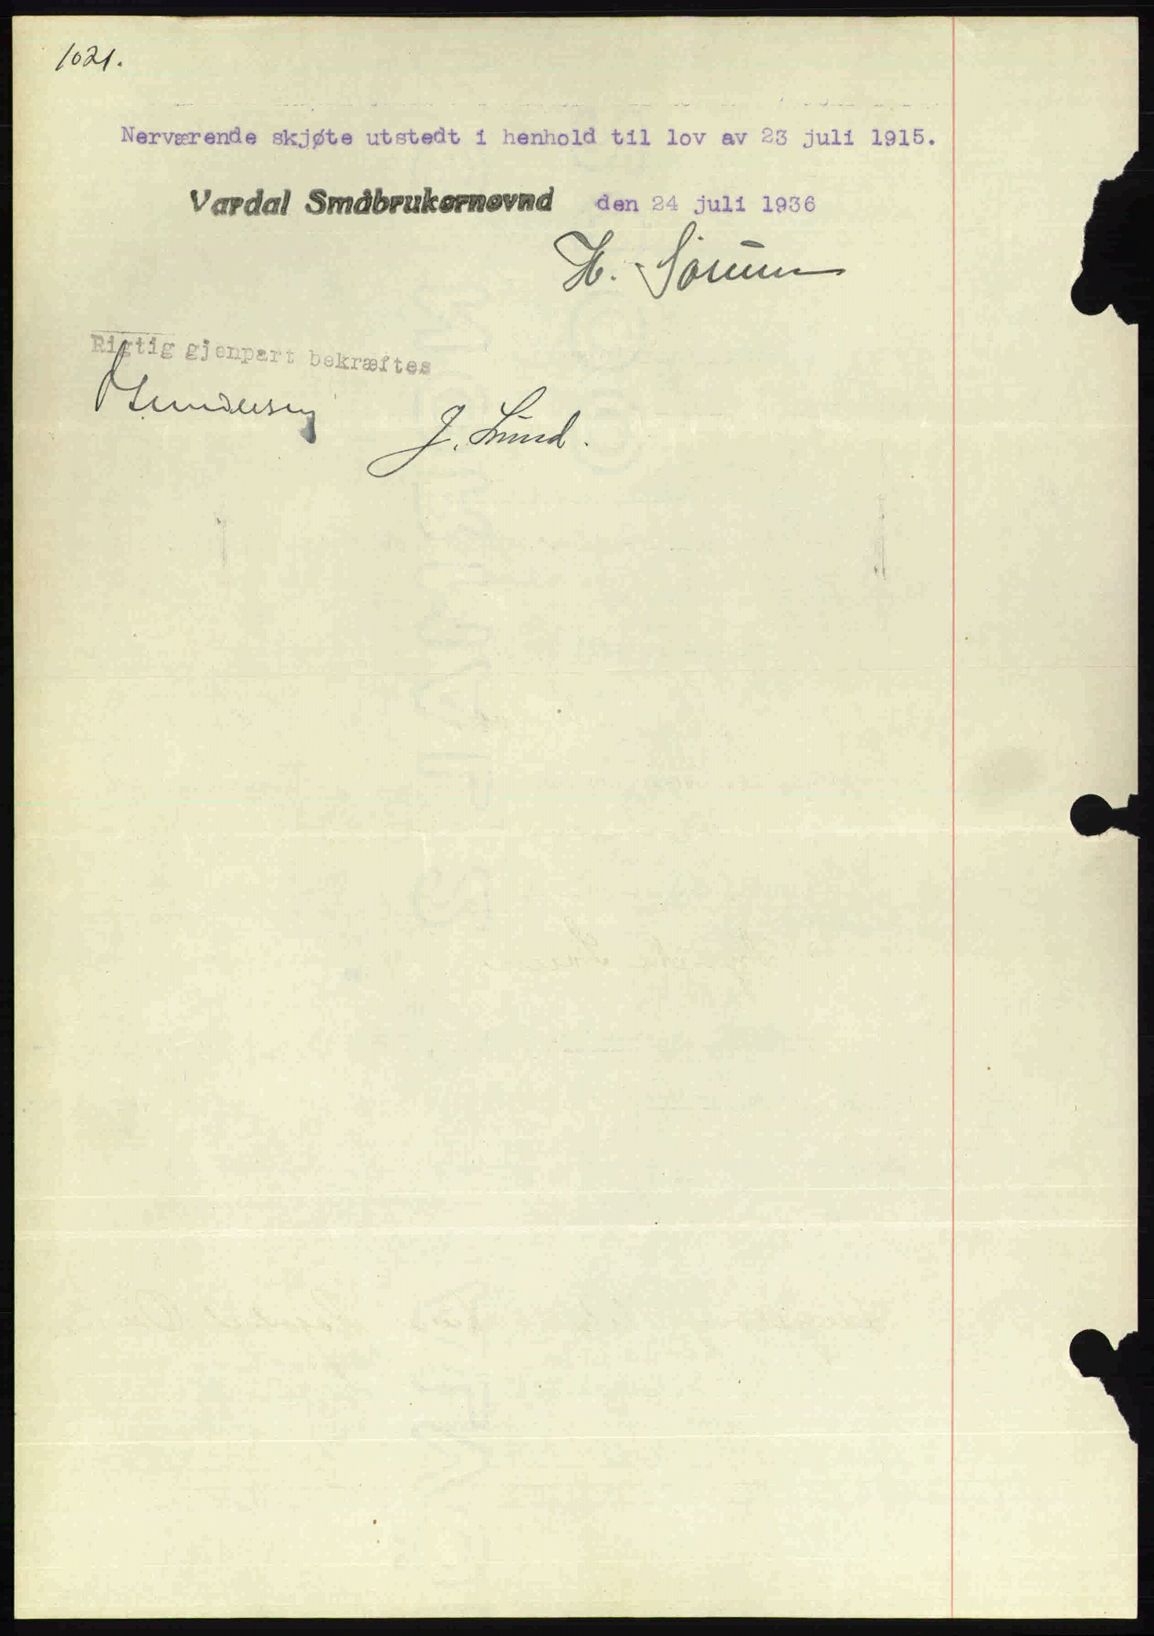 1021.
Nerværende skjøte utstedt i henhold til lov av 23 juli 1915.
Vardal Småbrukernevnd den 24 juli 1936
H. Sørum
Rigtig gjenpart bekræftes
J. Lund.